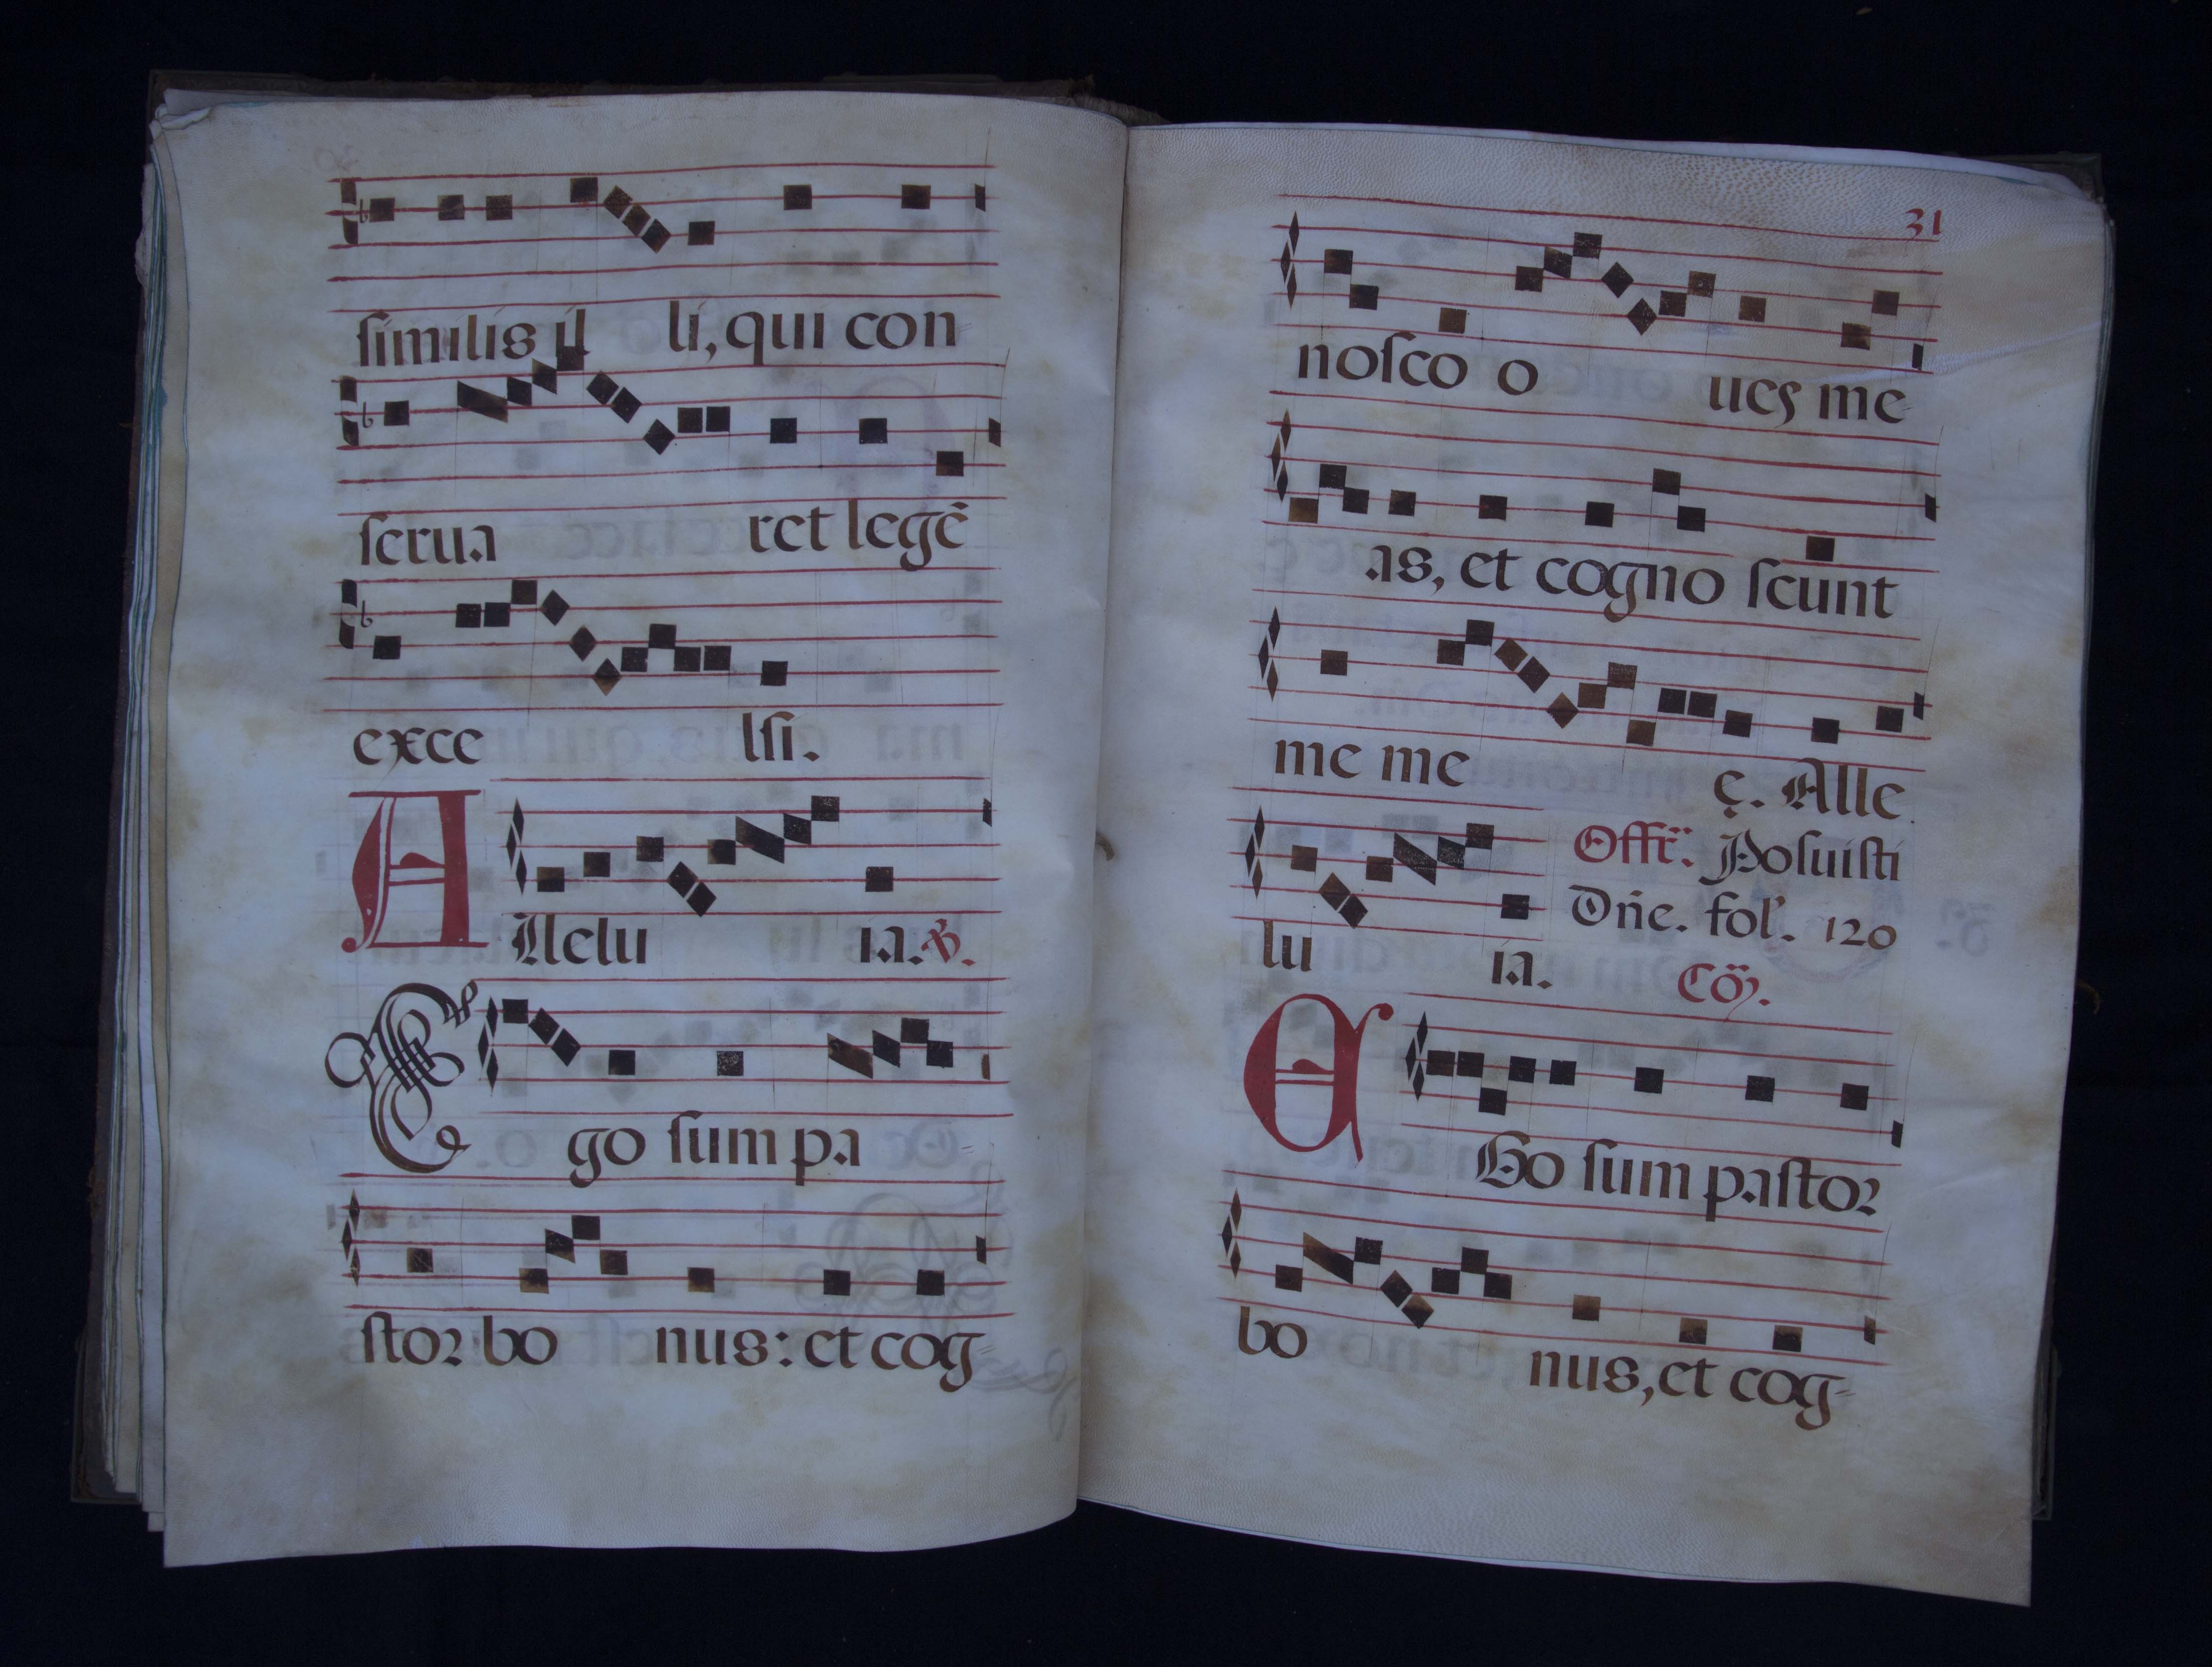 similis il li, qui con
serua ret legē
exce lsi.
Allelu ia. ℣.
Ego sum pa
stor bo nus: et cog=
31
nosco o ues me-
as, et cogno scunt
me me ę. Alle
lu ia. Offr̄. Posuisti
Dn̄e. fol. 120
Cō.
EGo sum pastor
bo nus, et cog=